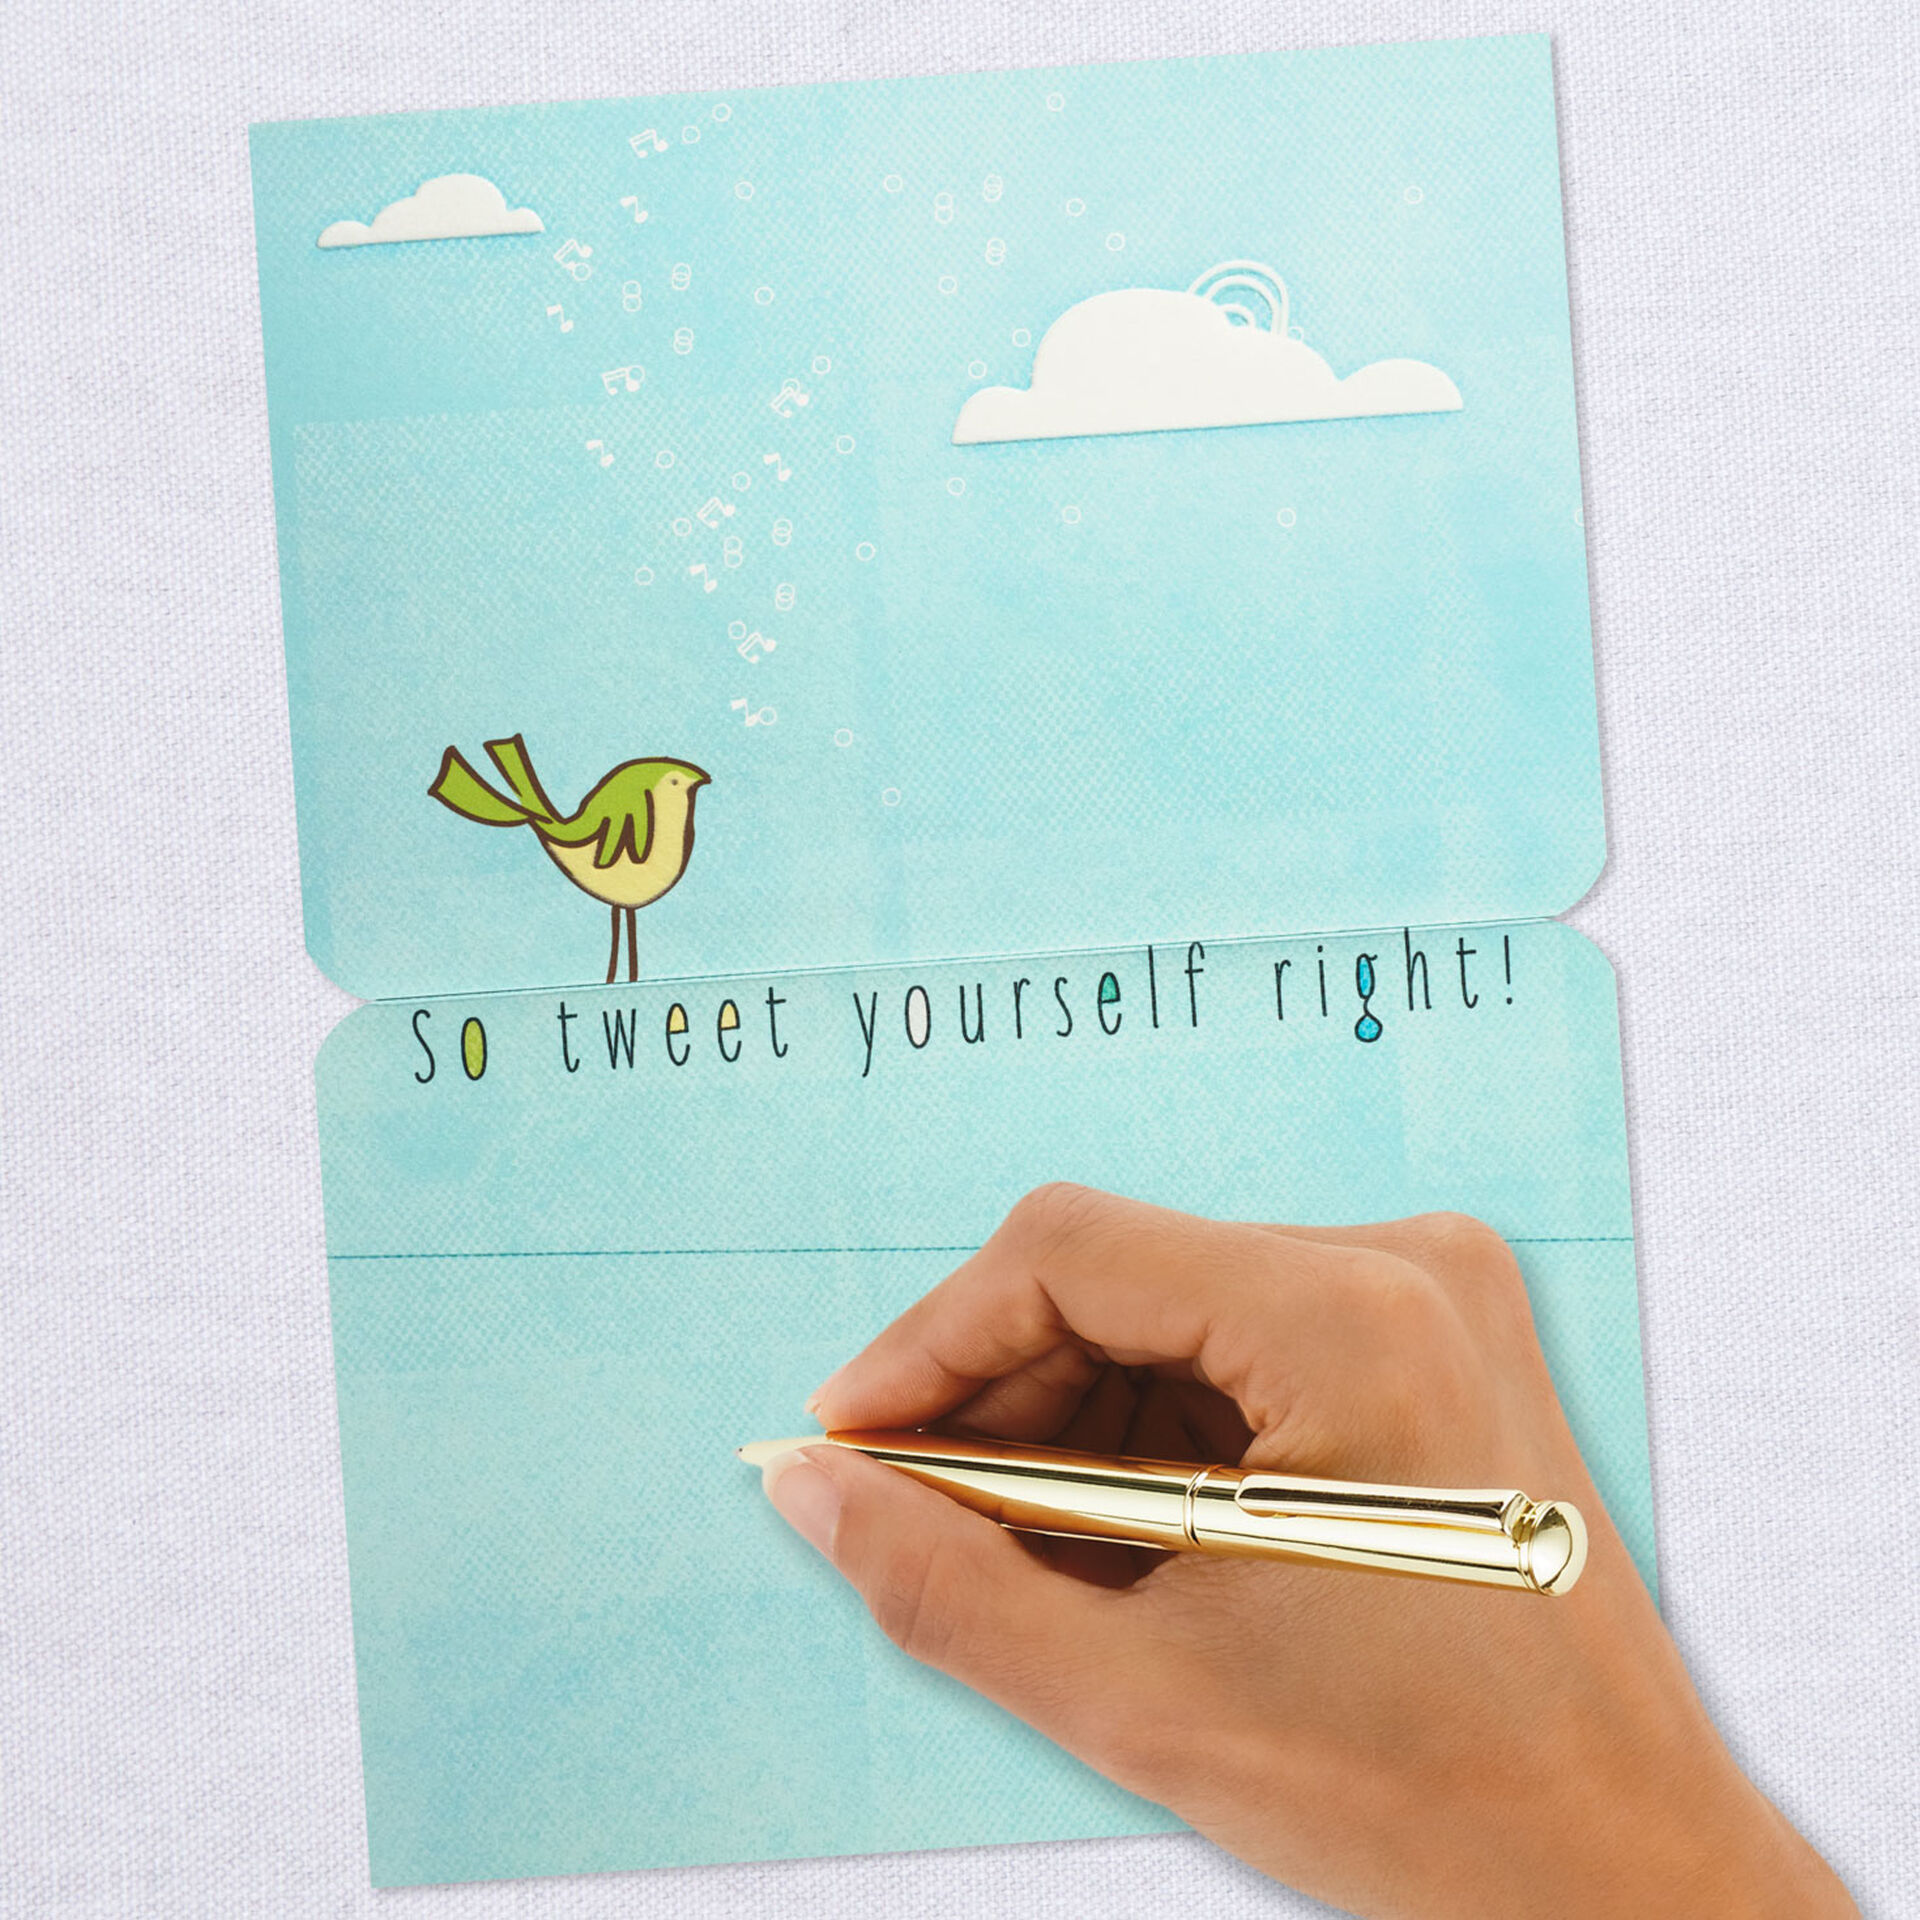 So tweet yourself right!